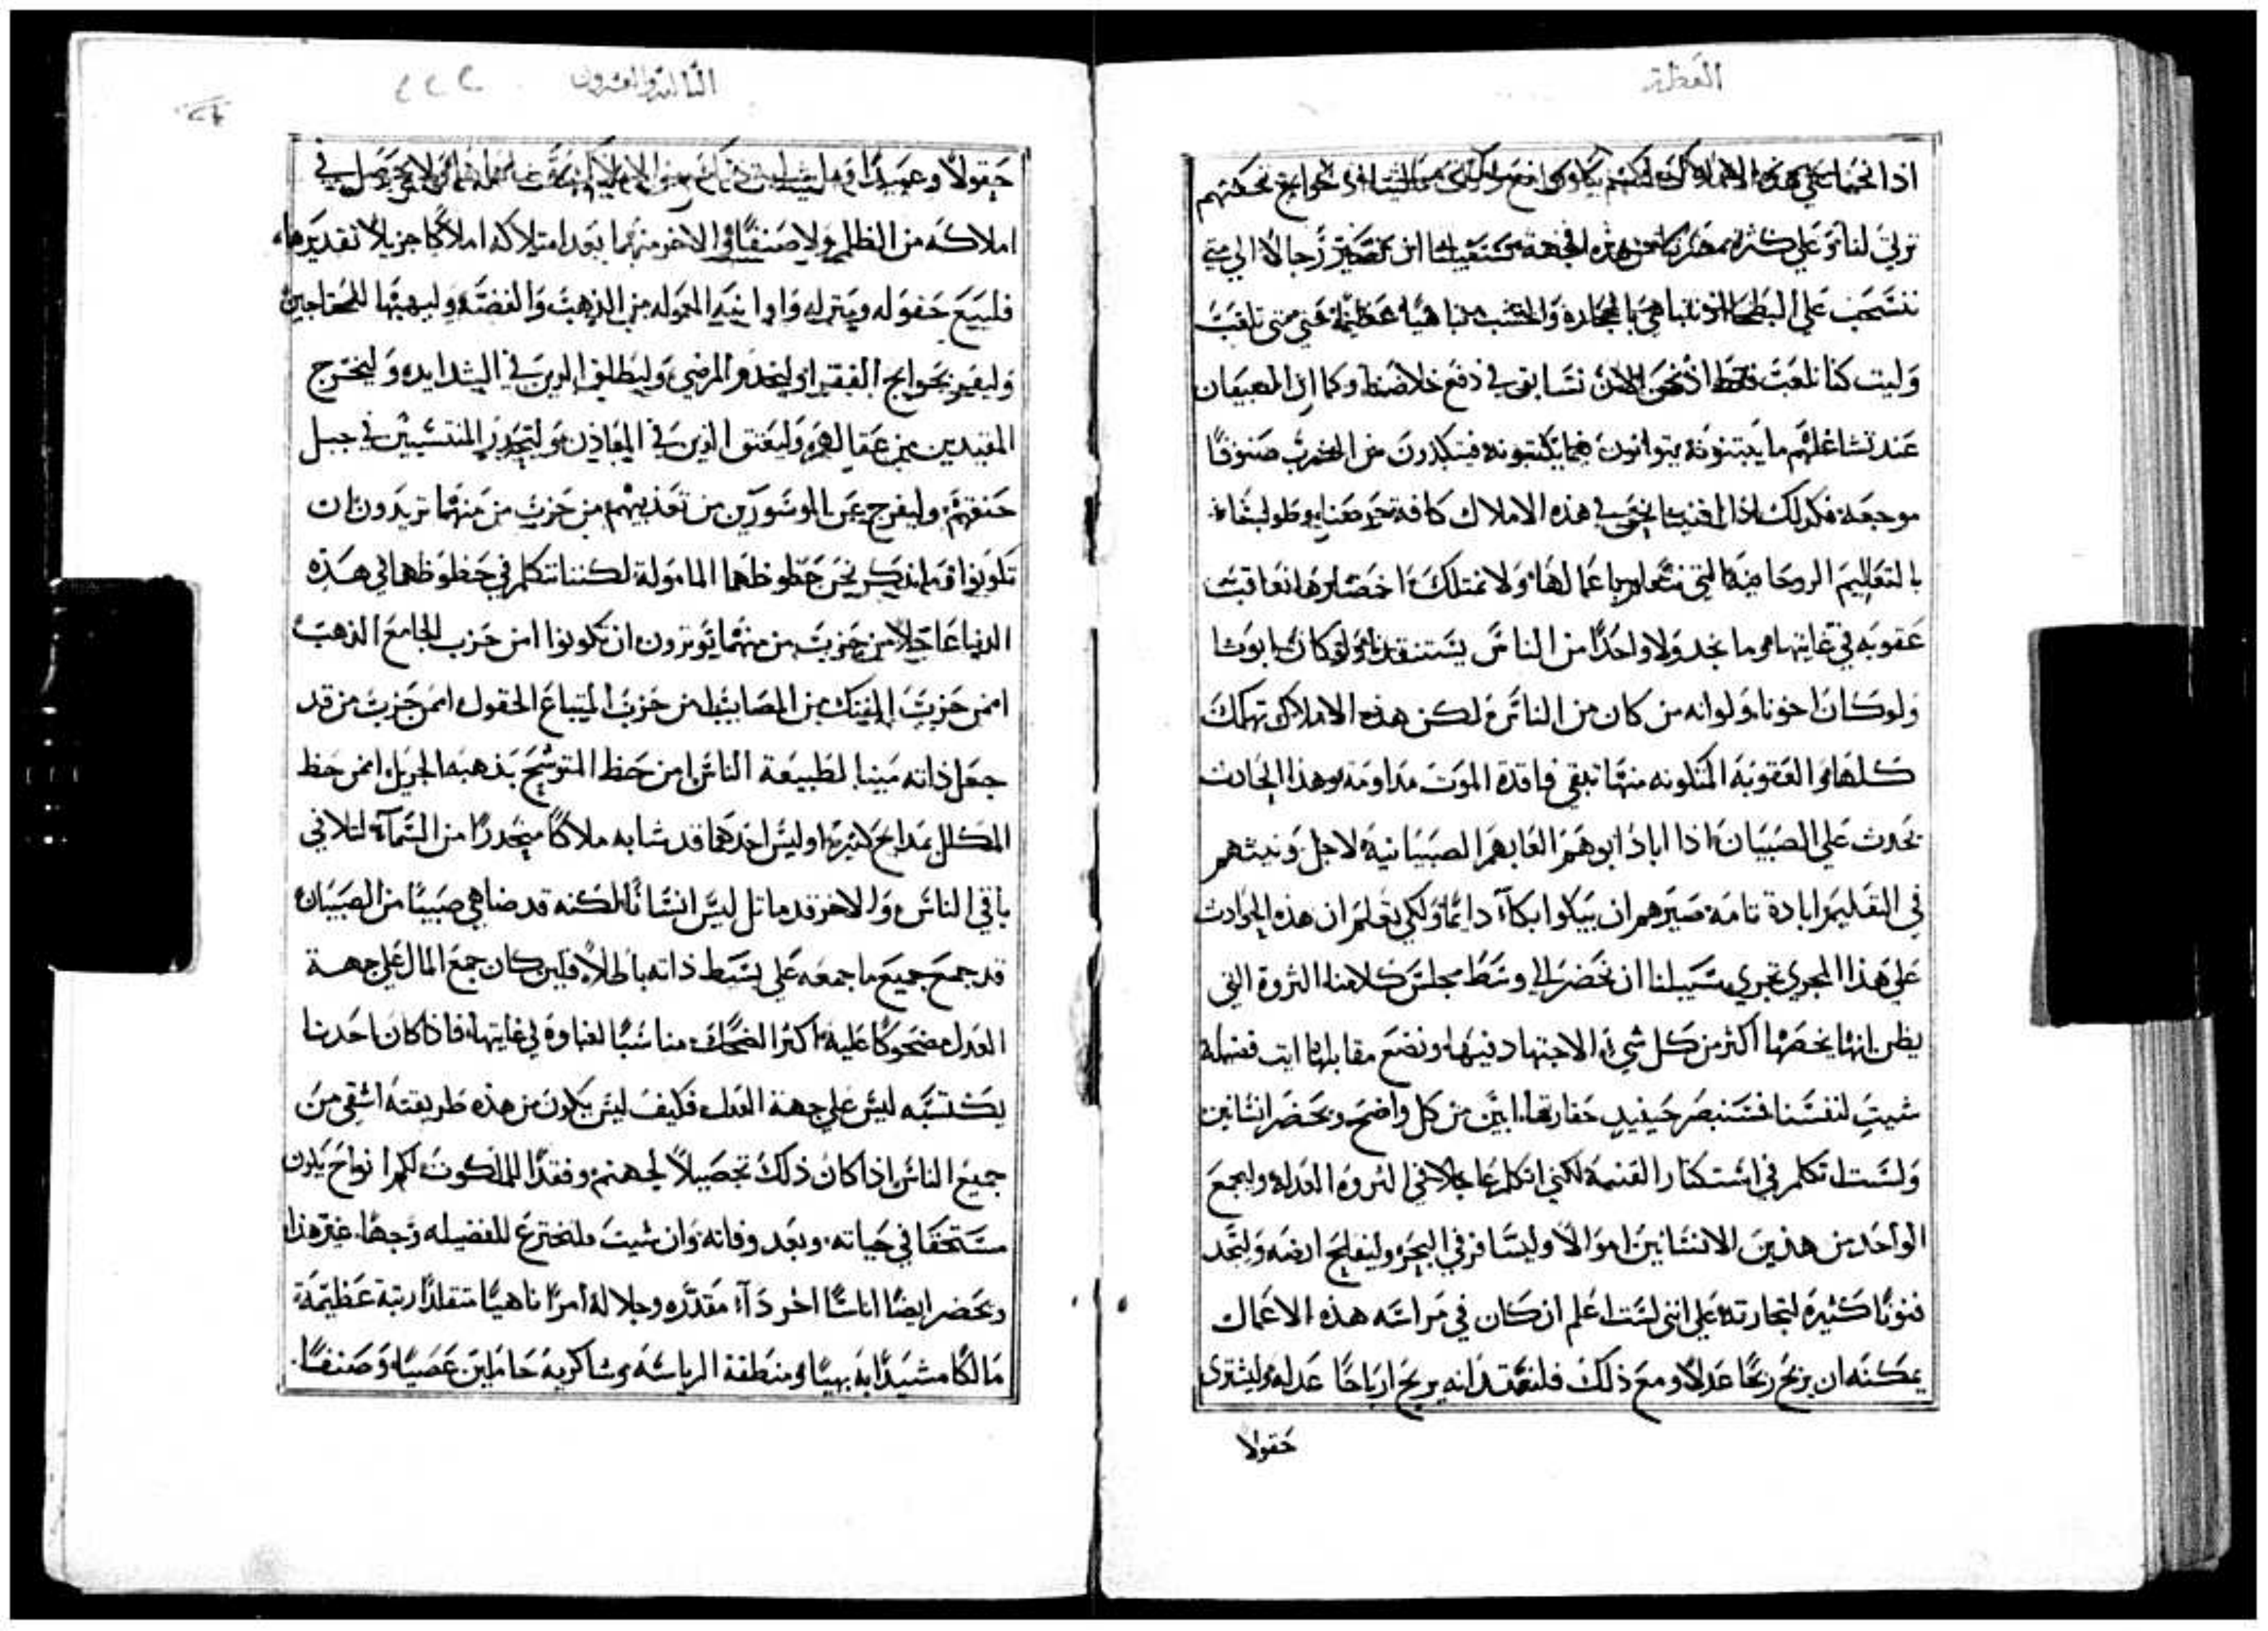 العظة
اذا نحن
ترتي لنا وعلي كثرة من هذه الجهة ان تصير رجالا الي متي
ننسحب علي البطحا اذ نتباهي بالحجارة والخشب مباهياة عظيمة حتي متي نلعب
وليت كنا نلعب فقط اذ نحن الان نتسابق في دفع خلاصنا وكما ان الصبيان
عند تشاغلهم ما يتوانون فيما يكتبونه فيتكبدون من الضرب صنوفا
موجعة فكذلك اذا افنينا في هذه الاملاك كافة
بالتعاليم الروحانية التي باعمالها ولا نمتلك احضارها نعاقب
عقوبه في غايتها وما نجد ولا واحدا من الناس يستنقذنا ولو كان ابونا
ولو كان اخونا ولو انه من كان من الناس لكن هذه الاملاك تهلك
كلها والعقوبة المتكونه منها تبقي فاقدة الموت مداومة وهذا الحادث
يحدث علي الصبيان اذا اباد ابوهم العابهم الصبيانية لاجل ونيتهم
في التعليم ابادة تامة صيرهم ان يبكوا بكآء دائما ولكي تعلم ان هذه الحوادث
علي هذا المجري تجري سبيلنا ان نحضر الي وسط مجلس كلامنا الثروة التي
يظن انها يخصها اكثر من كل شي الاجتهاد فيها ونضع مقابلها ايت فضيلة
شيت لنفسنا فسنبصر حينيدٍ حقارتها ابين من كل واضح ونحضر انسانين
ولست اتكلم في استكثار القنية لكني اتكلم عاجلا في الثروة العدلة وليجمع
الواحد من هذين الانسانين اموالا وليسافر في البحر وليفلح ارضه وليجد
فنونا كثيرة لتجارته علي انني لست اعلم ان كان في مراسه هذه الاعمال
يمكنه ان يربح ربحا عدلا ومع ذلك فلنعتقد انه يربح ارباحا عدله وليشتري
حقولا
الثالثة والعشرون
٢٢٢
حقولا وعبيدا وما
املاكه من الظلم ولا صنفا والاخر منهما بعد امتلاكه املاكا جزيلا تقديرها
فليبيع حقوله ومنزله واوانيه المعموله من الذهب والفضة وليهبها للمحتاجين
وليقم بحوايج الفقرا وليخدم المرضي وليطلق الذين في الشدايد وليخرج
المقيدين من عقالهم وليعتق الذين في المعادن وليحدر المنتشبين في حبل
خنقهم وليفرج عن الموسورين من تعذيبهم من حزب من منهما تريدون ان
تكونوا وما نذكر نحن حظوظهما المامولة لكننا نتكلم في حظوظهما في هذه
الدنيا عاجلا من حزب من منهما توثرون ان تكونوا امن حزب الجامع الذهب
امن حزب المفكك من المصايب امن حزب المبتاع الحقول امن حزب من قد
جعل ذاته مينا لطبيعة الناس امن حظ المتوشح بذهبه الجزيل امن حظ
المكلل بمدايح كثيرة اوليس احدهما قد شابه ملاكا منحدرا من السمآء لتلافي
باقي الناس والاخر قد ماثل ليس انسانا لكنه قد ضاهي صبيا من الصبيان
قد جمع جميع ما جمعه علي بسط ذاته باطلا فلين كان جمع المال علي جهة
العدل مضحوكا عليه اكثر الضحك مناسبا لغباوة في غايتها فاذا كان احدنا
يكتسبه ليس علي جهة العدل فكيف ليس يكون من هذه طريقته اشقي من
جميع الناس اذا كان ذلك تحصيلا لجهنم وفقدا للملكوت لكم انواح يكون
مستحقا في حياته وبعد وفاته وان شيت فلنخترع للفضيله وجها غير هذا
ونحضر ايضا انسانا اخر ذآ مقدره وجلالة امرا ناهيا متقلدا رتبة عظيمة
مالكا مشيدا به بهيا ومنطقة الرياسة وشاكرية حاملين عصيا وصنفا.